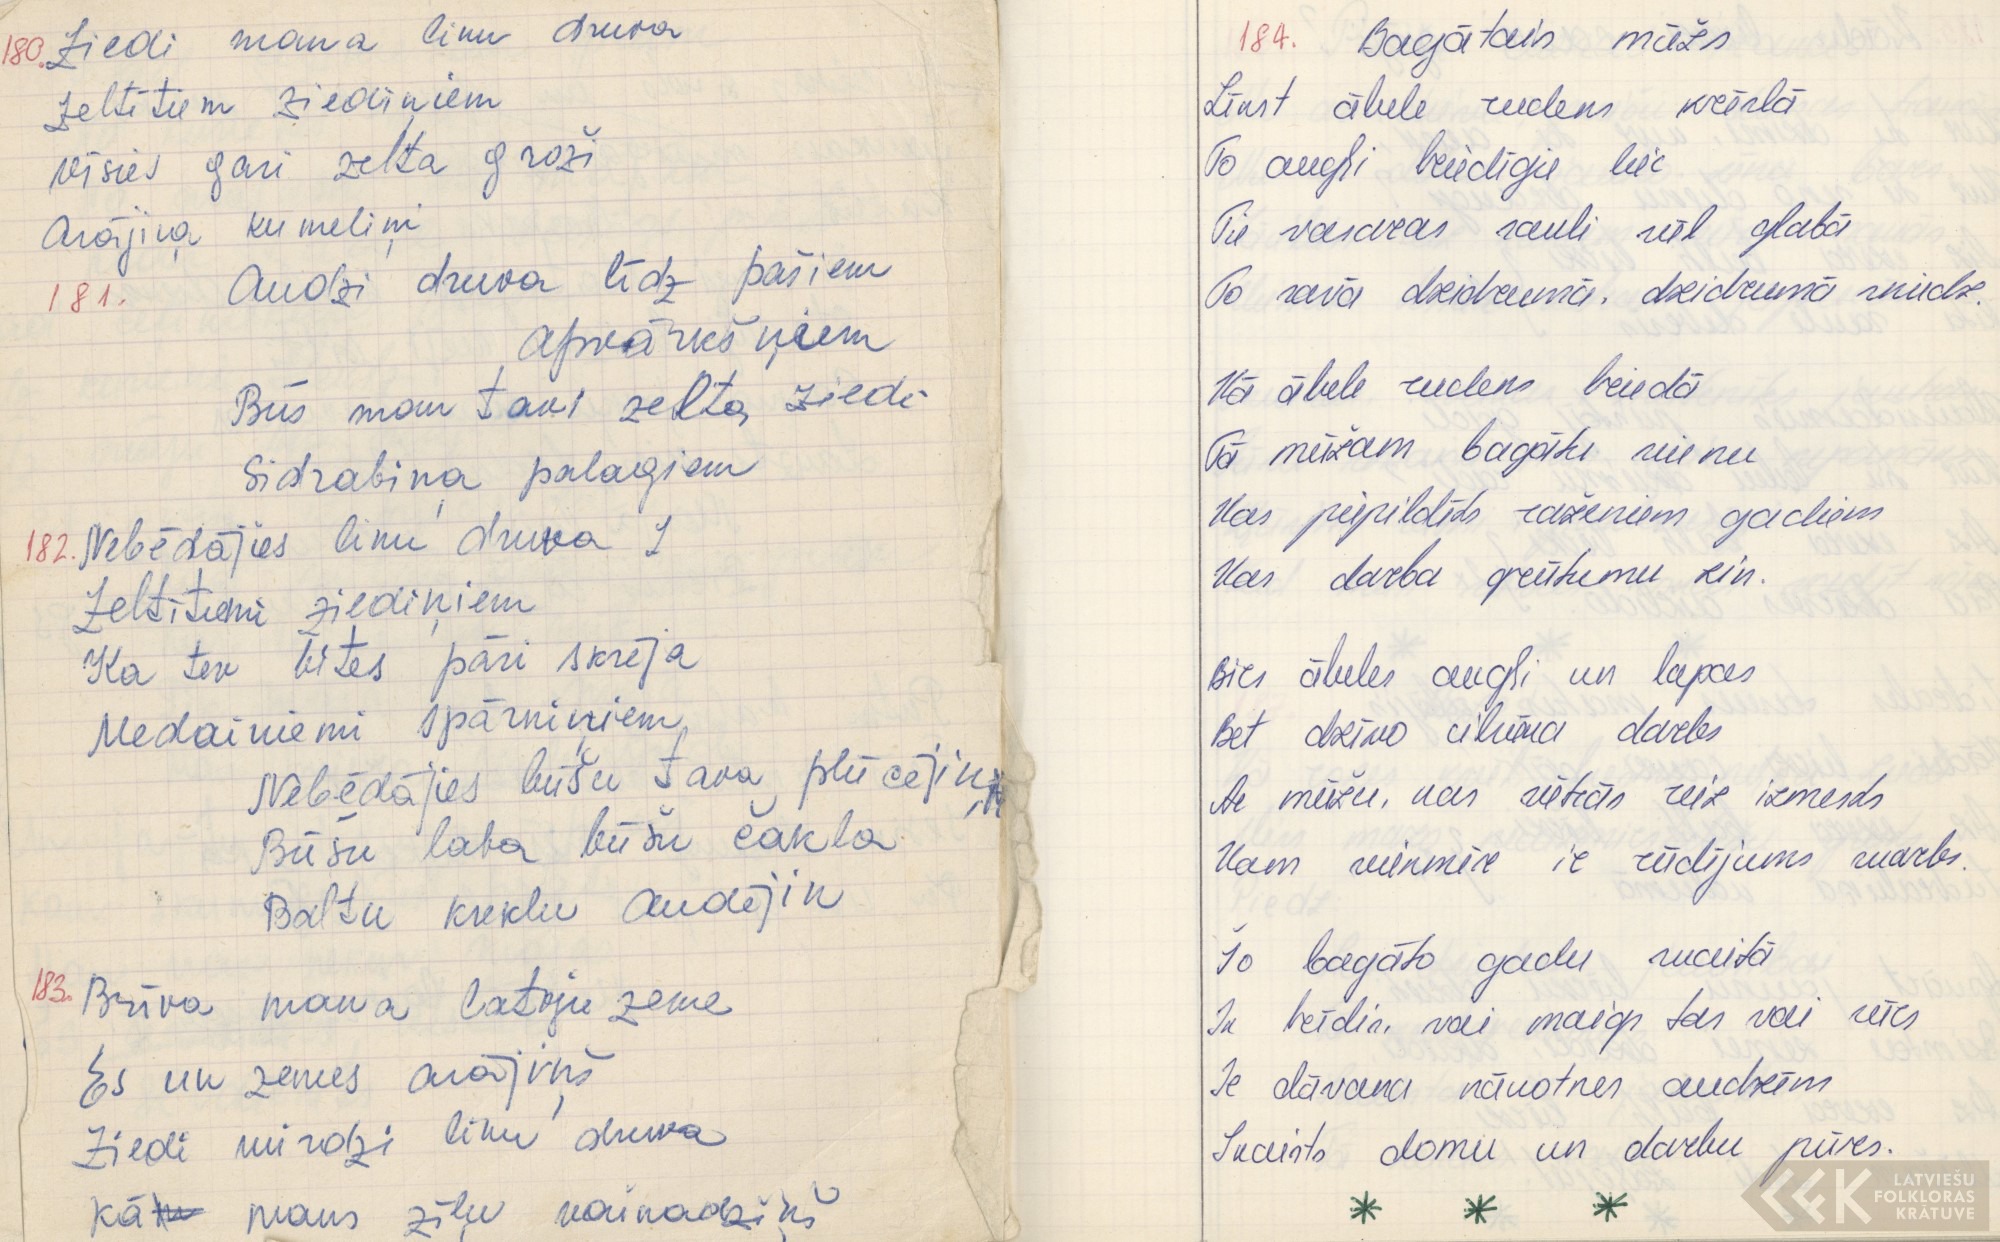 180. Ziedi mana linu druva
Zeltītiem ziediņiem
Vīsies gari zelta groži
Arājiņa kumeliņi
181. Audzi druva līdz pašiem
apvārkšņiem
Būs man tavi zelta ziedi
Sidrabiņa palagiem
182. Nebēdājies linu druva
Zeltītiemi ziediņiem
Ka tev bites pāri skrēja
Medainiemi spārniņiem
Nebēdājies būšu tava plūcējiņ
Būšu laba būšu čakla
Baltu kreklu audējiņ
183. Brīva mana Latvju zeme
Es un zemes arājiņš
Ziedi mirdzi linu druva
Kā mans zīļu vainadziņš
184. Bagātais mūžs
Līkst ābele rudens krēslā
To augļi briedīgie liec
Tie vasaras sauli vēl glabā
To savā dzidrumā, dzidrumā sniedz.
Kā ābele rudens briedā
Tā mūžam bagātu vienu
Kas piepildīts raženiem gadiem
Kas darba grūtumu zin.
Birs ābeles augļi un lapas
Bet dzīvo cilvēka darbs
Ar mūžu, kas vētrās reiz izmests
Kam vienmēr ir rūdījums skarbs.
Šo bagāto gadu skaitā
Ik brīdis, vai maigs tas vai sūrs
Ir dāvana nākotnes audzēm
Skaists domu un darbu pūrs.
LATVIEŠU
FOLKLORAS
KRĀTUVE